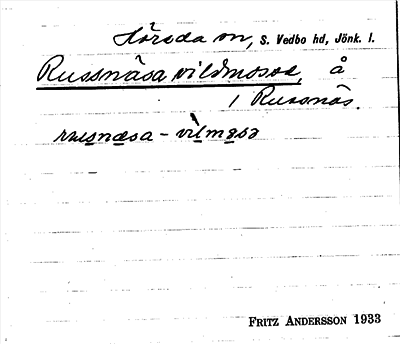 Hörsda sn, S. Vedbo hd, Jönk. l.
Russnäsa vildmosse, å
/ Russnäs.
russnæsa - vilmåsə
FRITZ ANDERSSON 1933